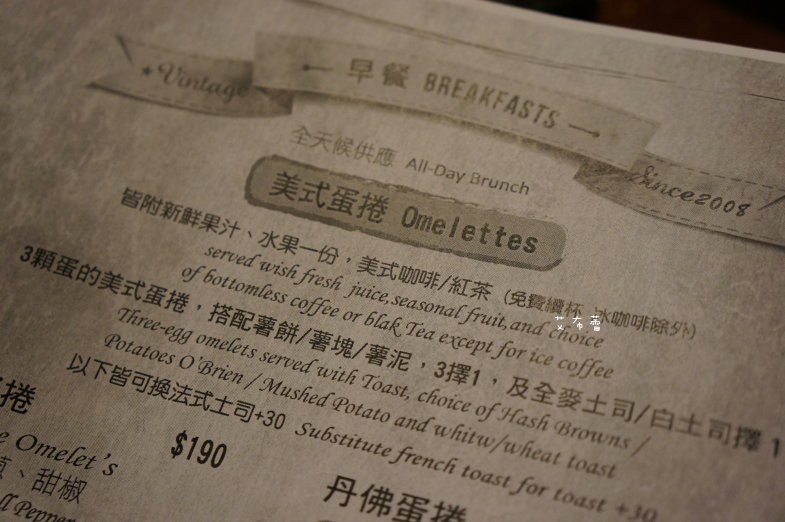 Vintage
早餐 BREAKFASTS
Since2008
全天候供應 All-Day Brunch
美式蛋捲 Omelettes
皆附新鮮果汁、水果一份，美式咖啡/紅茶 (免費續杯，冰咖啡除外)
served wish fresh juice,seasonal fruit,and choice
of bottomless coffee or blak Tea except for ice coffee
3顆蛋的美式蛋捲，搭配薯餅/薯塊/薯泥，3擇1，及全麥土司/白土司擇1
Three-egg omelets served with Toast, choice of Hash Browns /
Potatoes O'Brien / Mushed Potato and whitw/wheat toast
以下皆可換法式土司+30 Substitute french toast for toast +30
捲
$190
Omelet's
、甜椒
丹佛蛋捲